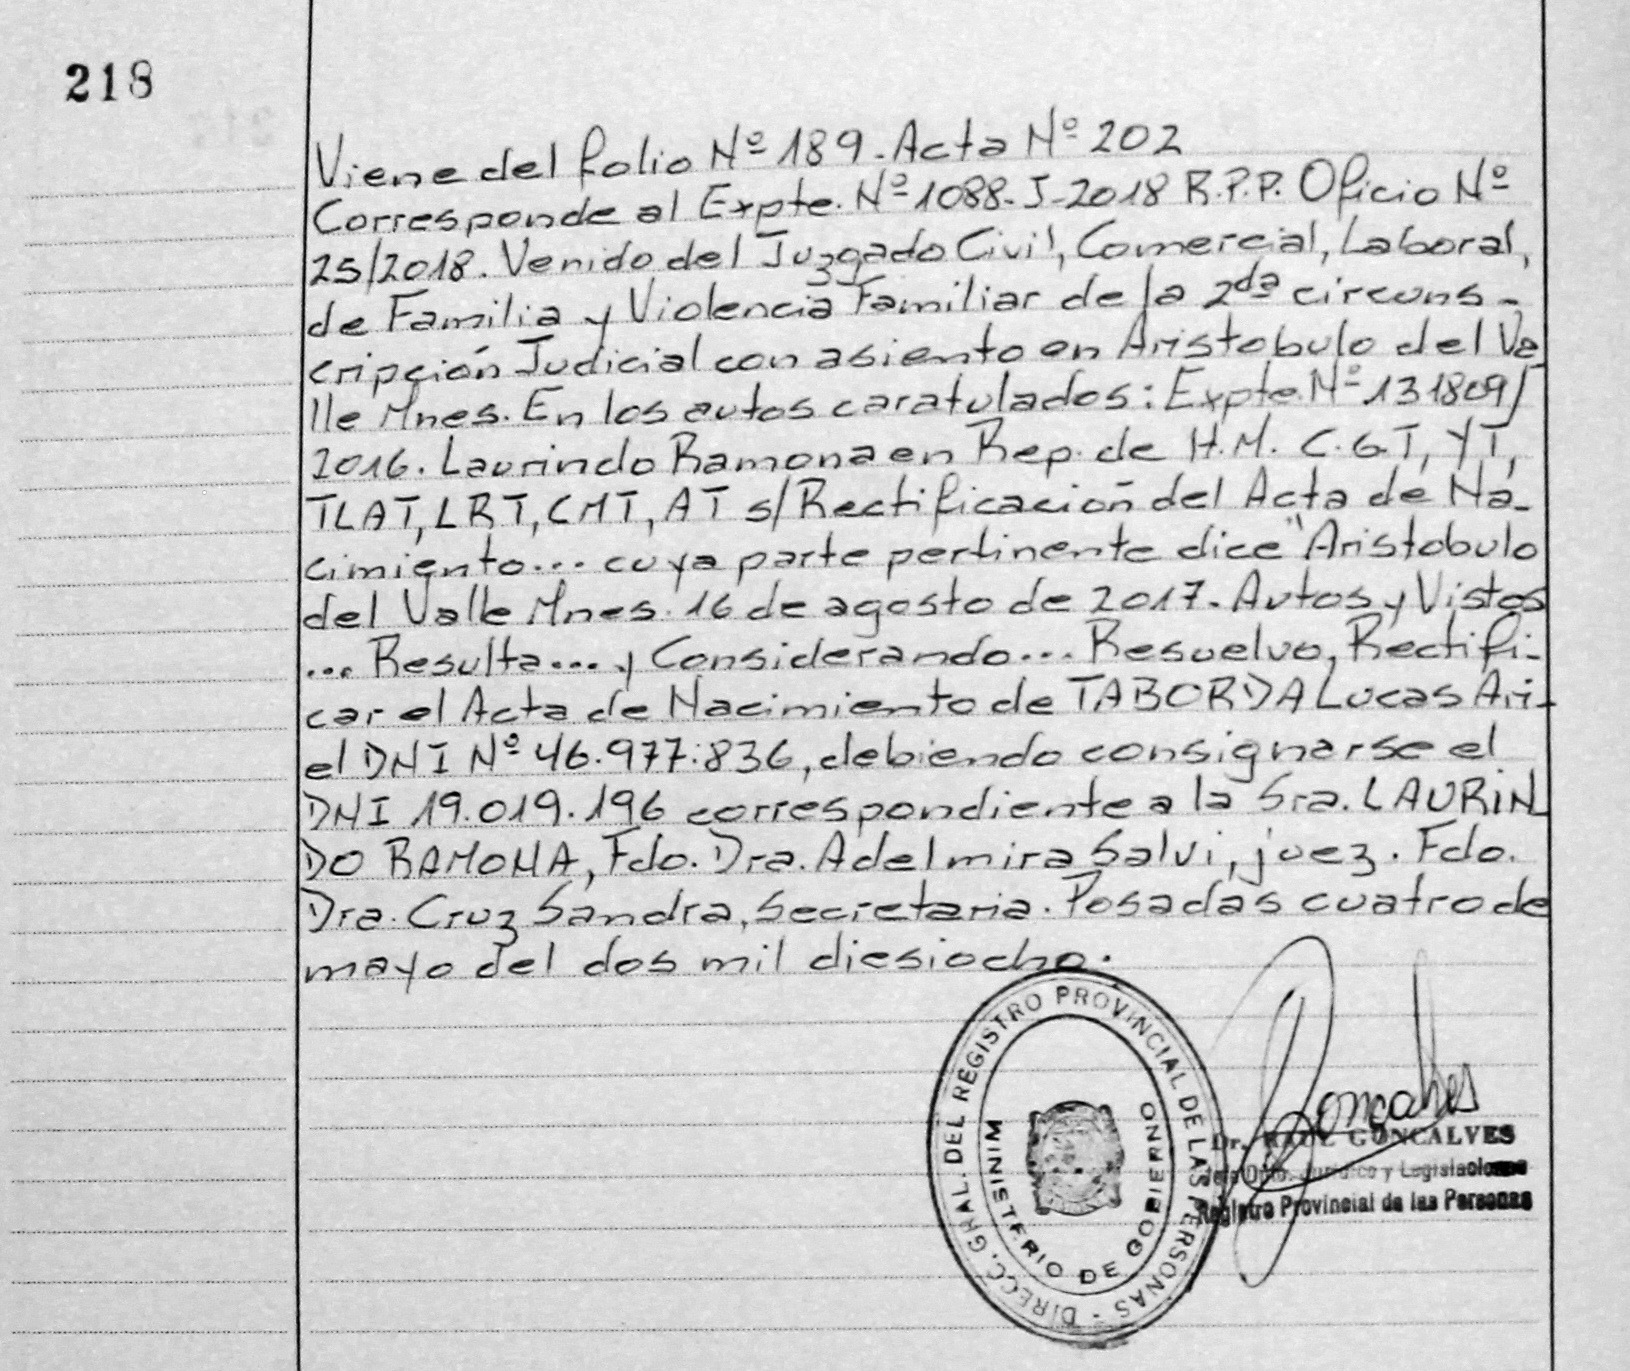 218
Viene del folio Nº 189. Acta Nº 202
Corresponde al Expte. Nº 1088-J-2018 R.P.P. Oficio Nº
25/2018. Venido del Juzgado Civil, Comercial, Laboral,
de Familia y Violencia Familiar de la 2da circuns-
cripción Judicial con asiento en Aristobulo del Va
lle Mnes. En los autos caratulados: Expte. Nº 131809/
2016. Laurindo Ramona en Rep. de H.M. C.G.T, YT,
TLAT, LRT, CMT, AT s/Rectificación del Acta de Na-
cimiento... cuya parte pertinente dice "Aristobulo
del Valle Mnes. 16 de agosto de 2017. Autos y Vistos
... Resulta... y Considerando... Resuelvo, Rectifi-
car el Acta de Nacimiento de TABORDA Lucas Ari-
el DNI Nº 46.977.836, debiendo consignarse el
DNI 19.019.196 correspondiente a la Sra. LAURIN
DO RAMONA, Fdo. Dra. Adelmira Salvi, juez. Fdo.
Dra. Cruz Sandra, Secretaria. Posadas cuatro de
mayo del dos mil diesiocho.
DIRECC. GRAL. DEL REGISTRO PROVINCIAL DE LAS PERSONAS -
MINISTERIO DE GOBIERNO
Gonçalves
Dr. RAUL GONCALVES
Jefe Dpto. Jurídico y Legislaciones
Registro Provincial de las Personas